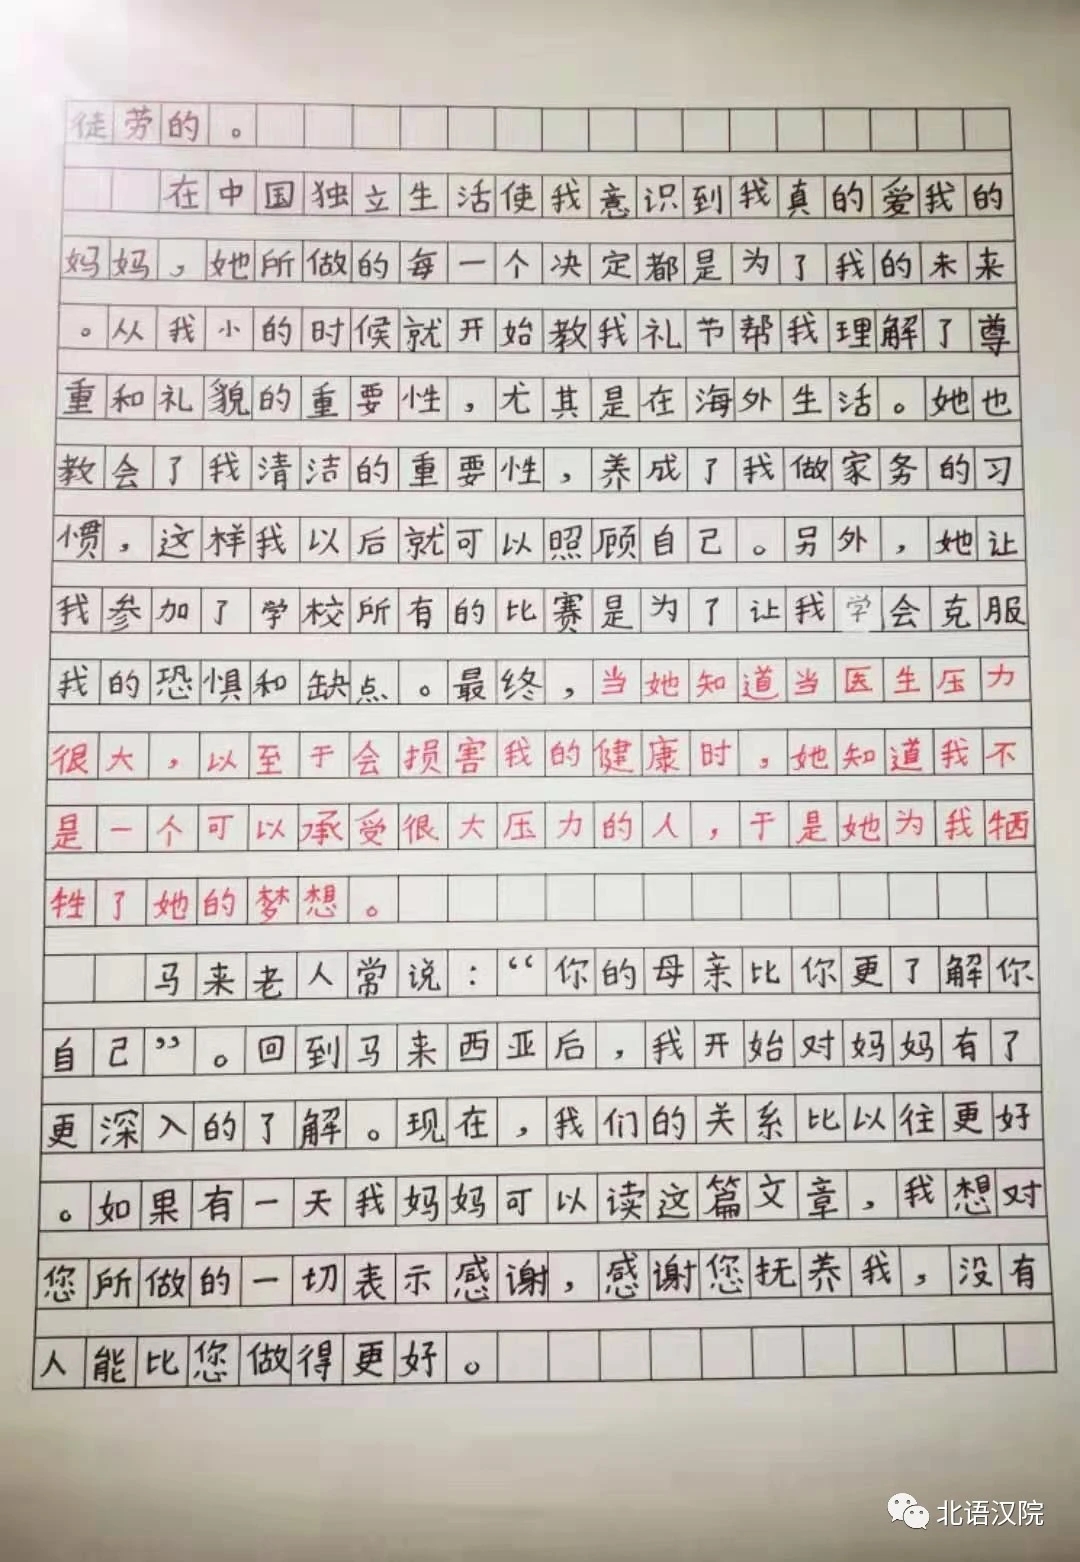 徒劳的。
在中国独立生活使我意识到我真的爱我的
妈妈，她所做的每一个决定都是为了我的未来
。从我小的时候就开始教我礼节帮我理解了尊
重和礼貌的重要性，尤其是在海外生活。她也
教会了我清洁的重要性，养成了我做家务的习
惯，这样我以后就可以照顾自己。另外，她让
我参加了学校所有的比赛是为了让我学会克服
我的恐惧和缺点。最终，当她知道当医生压力
很大，以至于会损害我的健康时，她知道我不
是一个可以承受很大压力的人，于是她为我牺
牲了她的梦想。
马来老人常说：“你的母亲比你更了解你
自己”。回到马来西亚后，我开始对妈妈有了
更深入的了解。现在，我们的关系比以往更好
。如果有一天我妈妈可以读这篇文章，我想对
您所做的一切表示感谢，感谢您抚养我，没有
人能比您做得更好。
北语汉院